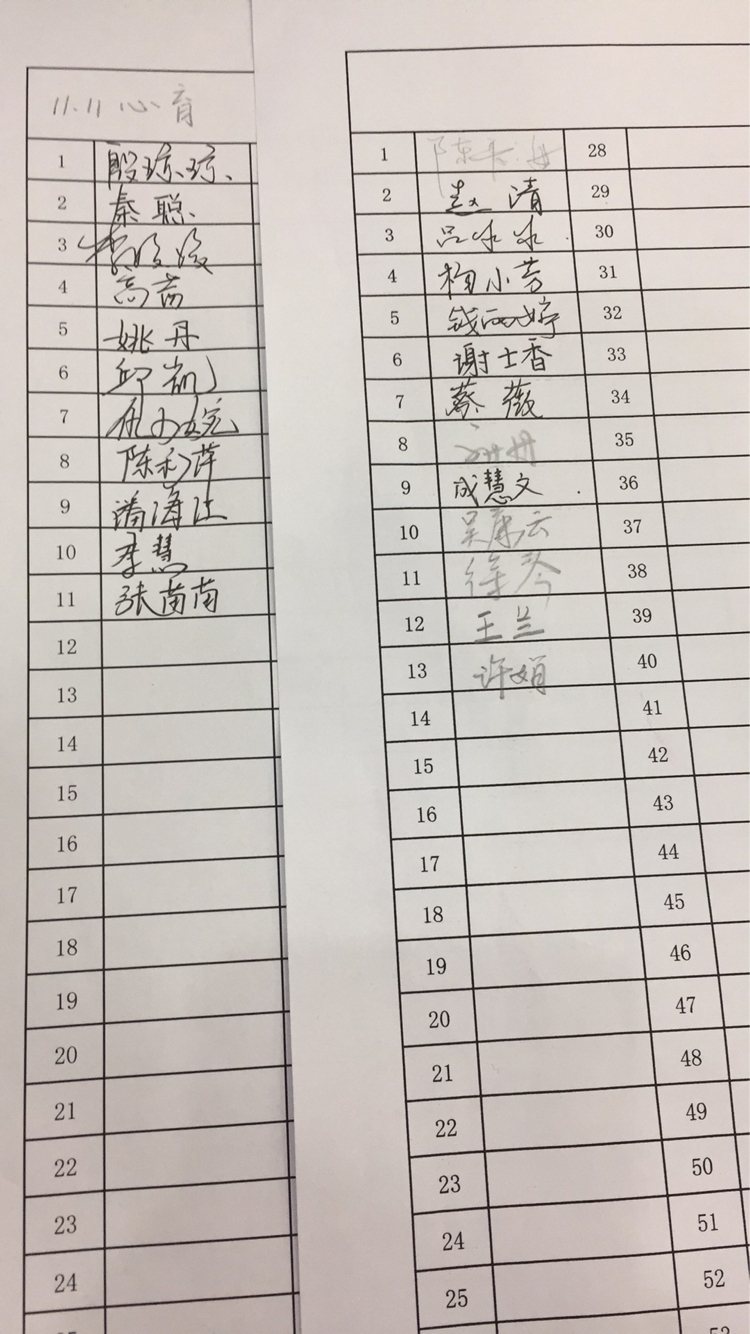 11.11 心育
1 殷琼琼、
2 秦聪、
3
4 高
5 姚丹
6 邱凯
7
8 陈利萍
9 潘海江
10 李慧
11 张苗苗
12
13
14
15
16
17
18
19
20
21
22
23
24
1 陈 28
2 赵清 29
3 吕冰冰 30
4 杨小芳 31
5 钱丽婷 32
6 谢士香 33
7 蔡薇 34
8 35
9 成慧文 . 36
10 吴康云 37
11 徐琴 38
12 王兰 39
13 许娟 40
14 41
15 42
16 43
17 44
18 45
19 46
20 47
21 48
22 49
23 50
24 51
25 52